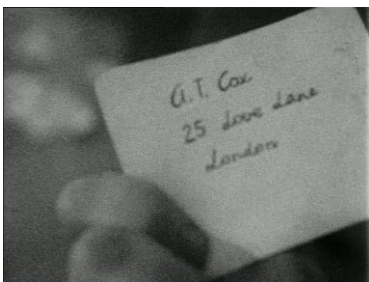 A.T. Cox
25 Love Lane
London